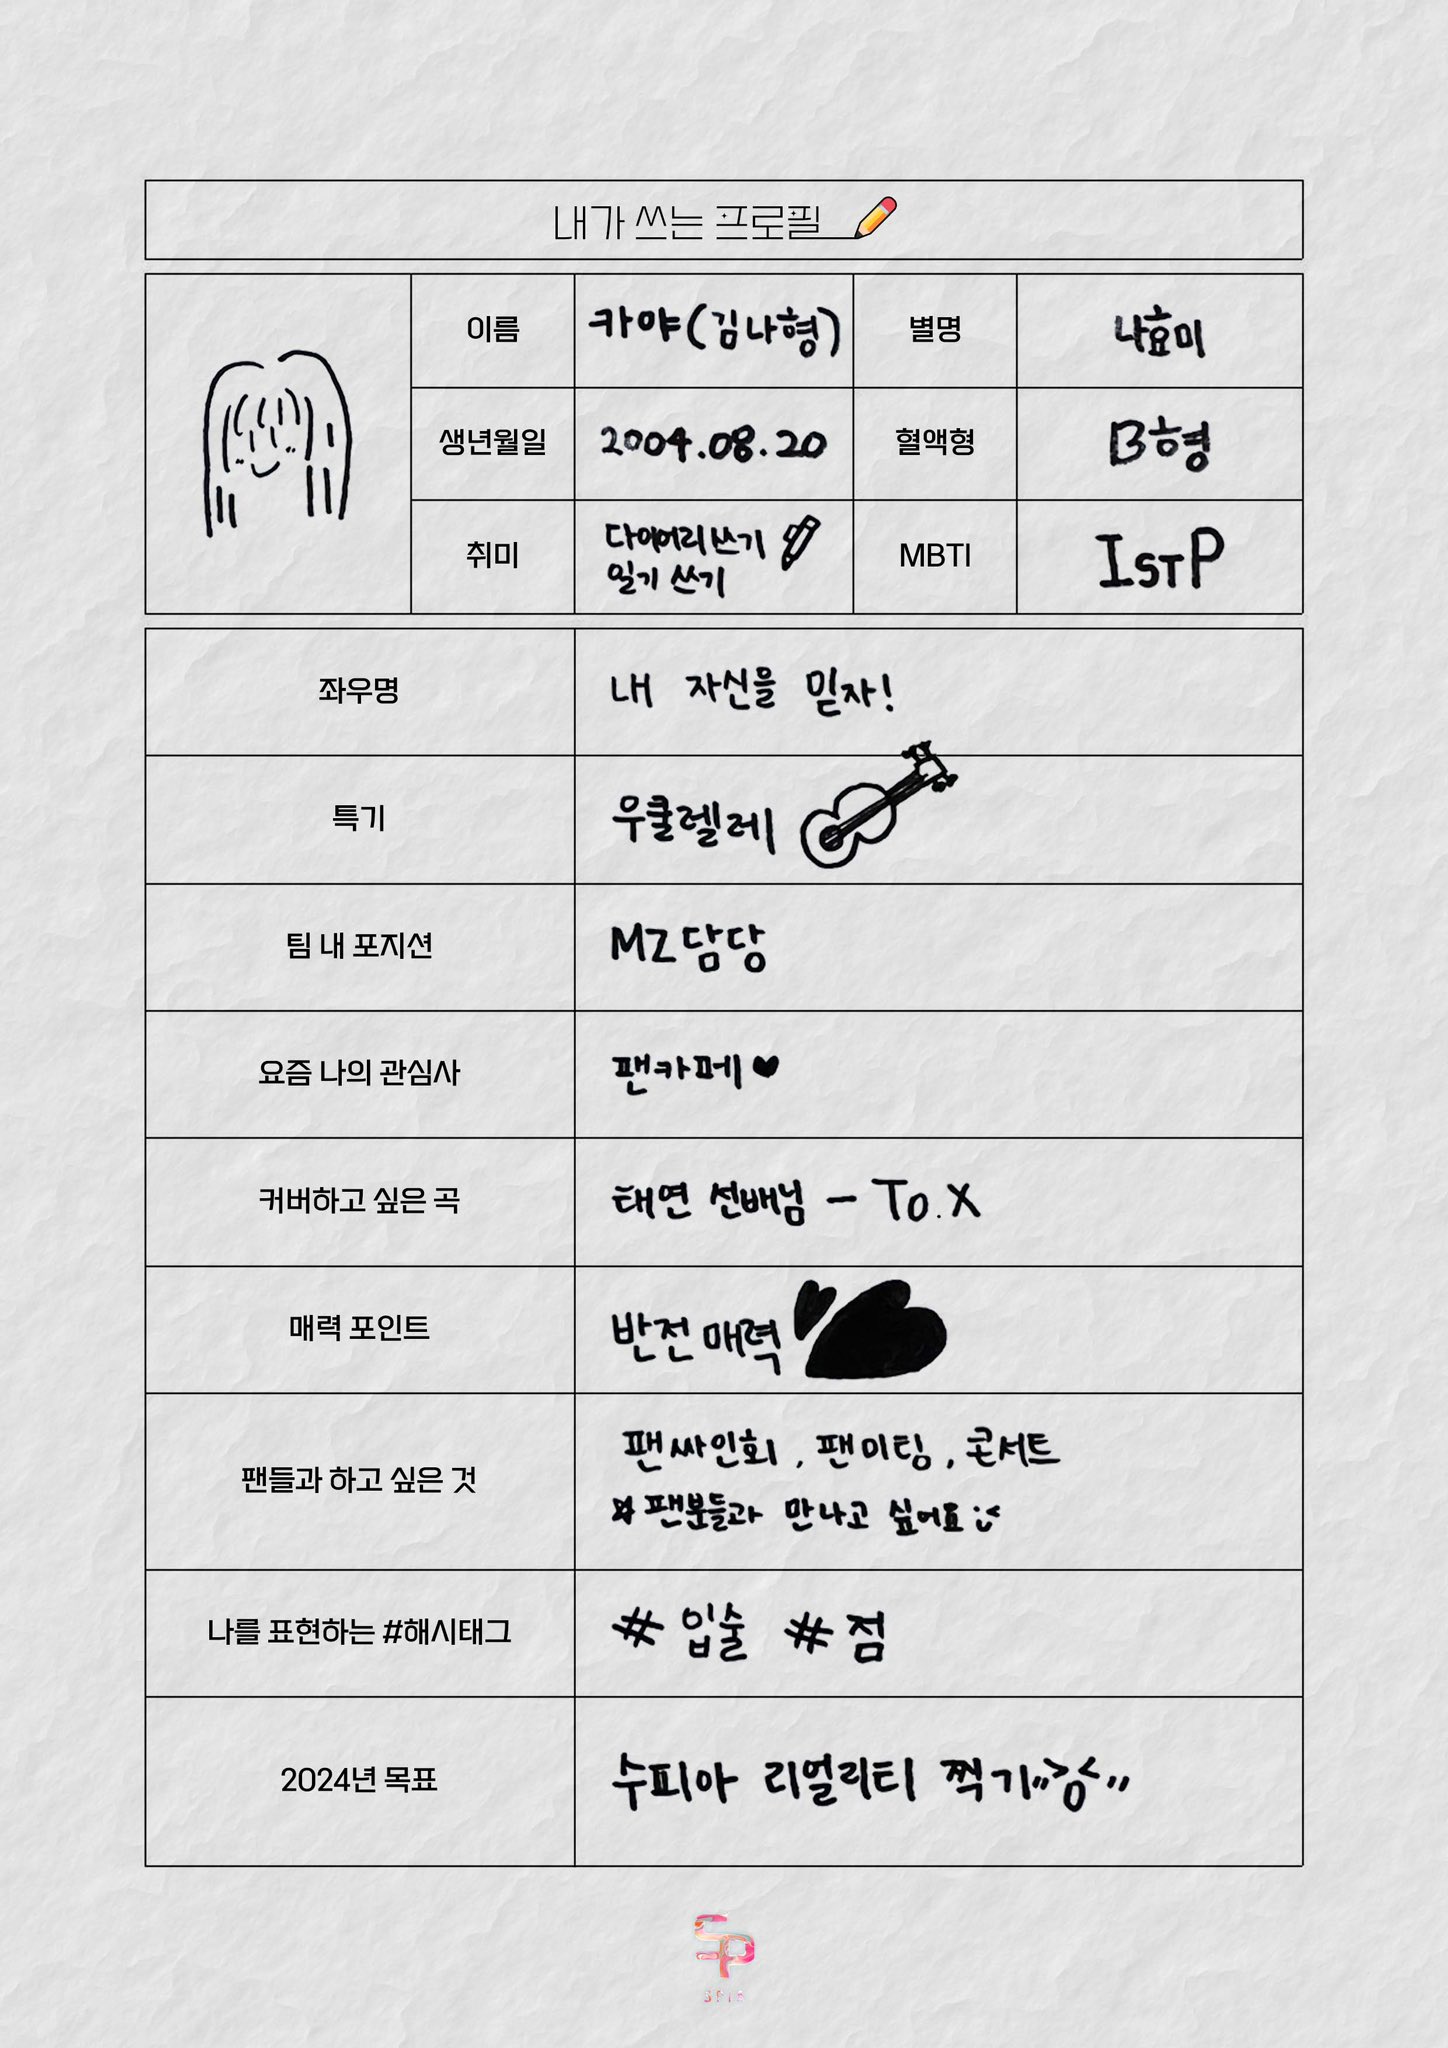 내가 쓰는 프로필
이름
카야(김나형)
별명
나효미
생년월일
2004.08.20
혈액형
B형
취미
다이어리 쓰기
일기 쓰기
MBTI
ISTP
좌우명
내 자신을 믿자!
특기
우쿨렐레
팀 내 포지션
MZ담당
요즘 나의 관심사
팬카페♥
커버하고 싶은 곡
태연 선배님 - To.X
매력 포인트
반전매력
팬들과 하고 싶은 것
팬싸인회, 팬미팅, 콘서트
☆팬분들과 만나고 싶어요
나를 표현하는 #해시태그
#입술 #점
2024년 목표
수피아 리얼리티 찍기
SP
SPIA